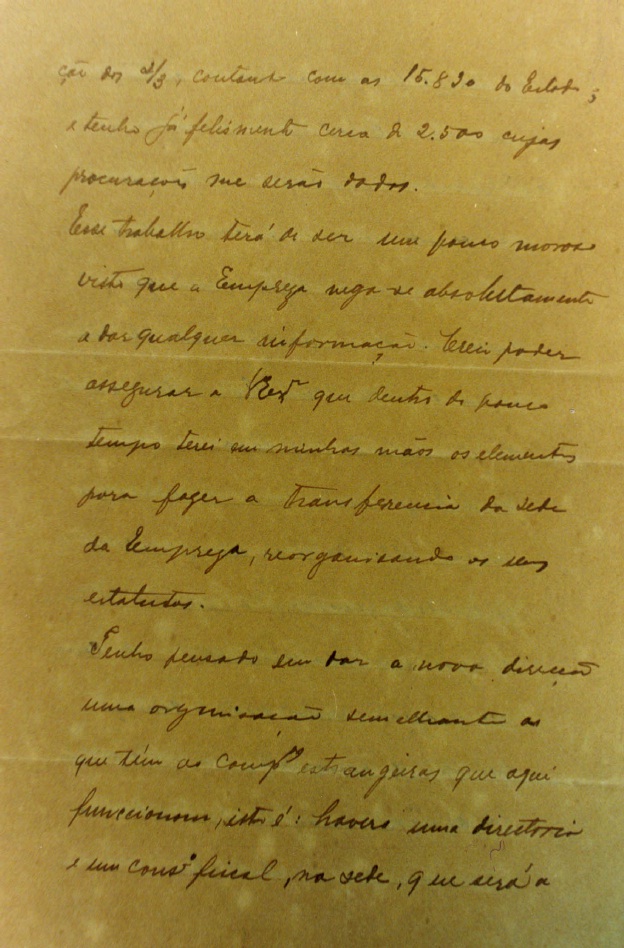 ção dos 2/3, contando com as 15.820 do Estado;
e tenho já felismente cerca de 2.500 cujas
procurações me serão dadas.
Esse trabalho terá de ser um pouco moroso
visto que a Empreza nega-se absolutamente
a dar qualquer informação. Creio poder
assegurar a V Exª que dentro de pouco
tempo terei em minhas mãos os elementos
para fazer a transferencia da séde
da Empreza, reorganisando os seus
estatutos.
Tenho pensado em dar a nova direcção
uma organisação semelhante as
que têm as Compªs estrangeiras que aqui
funccionam, isto é: haverá uma directoria
e um consº fiscal, na séde, que será a